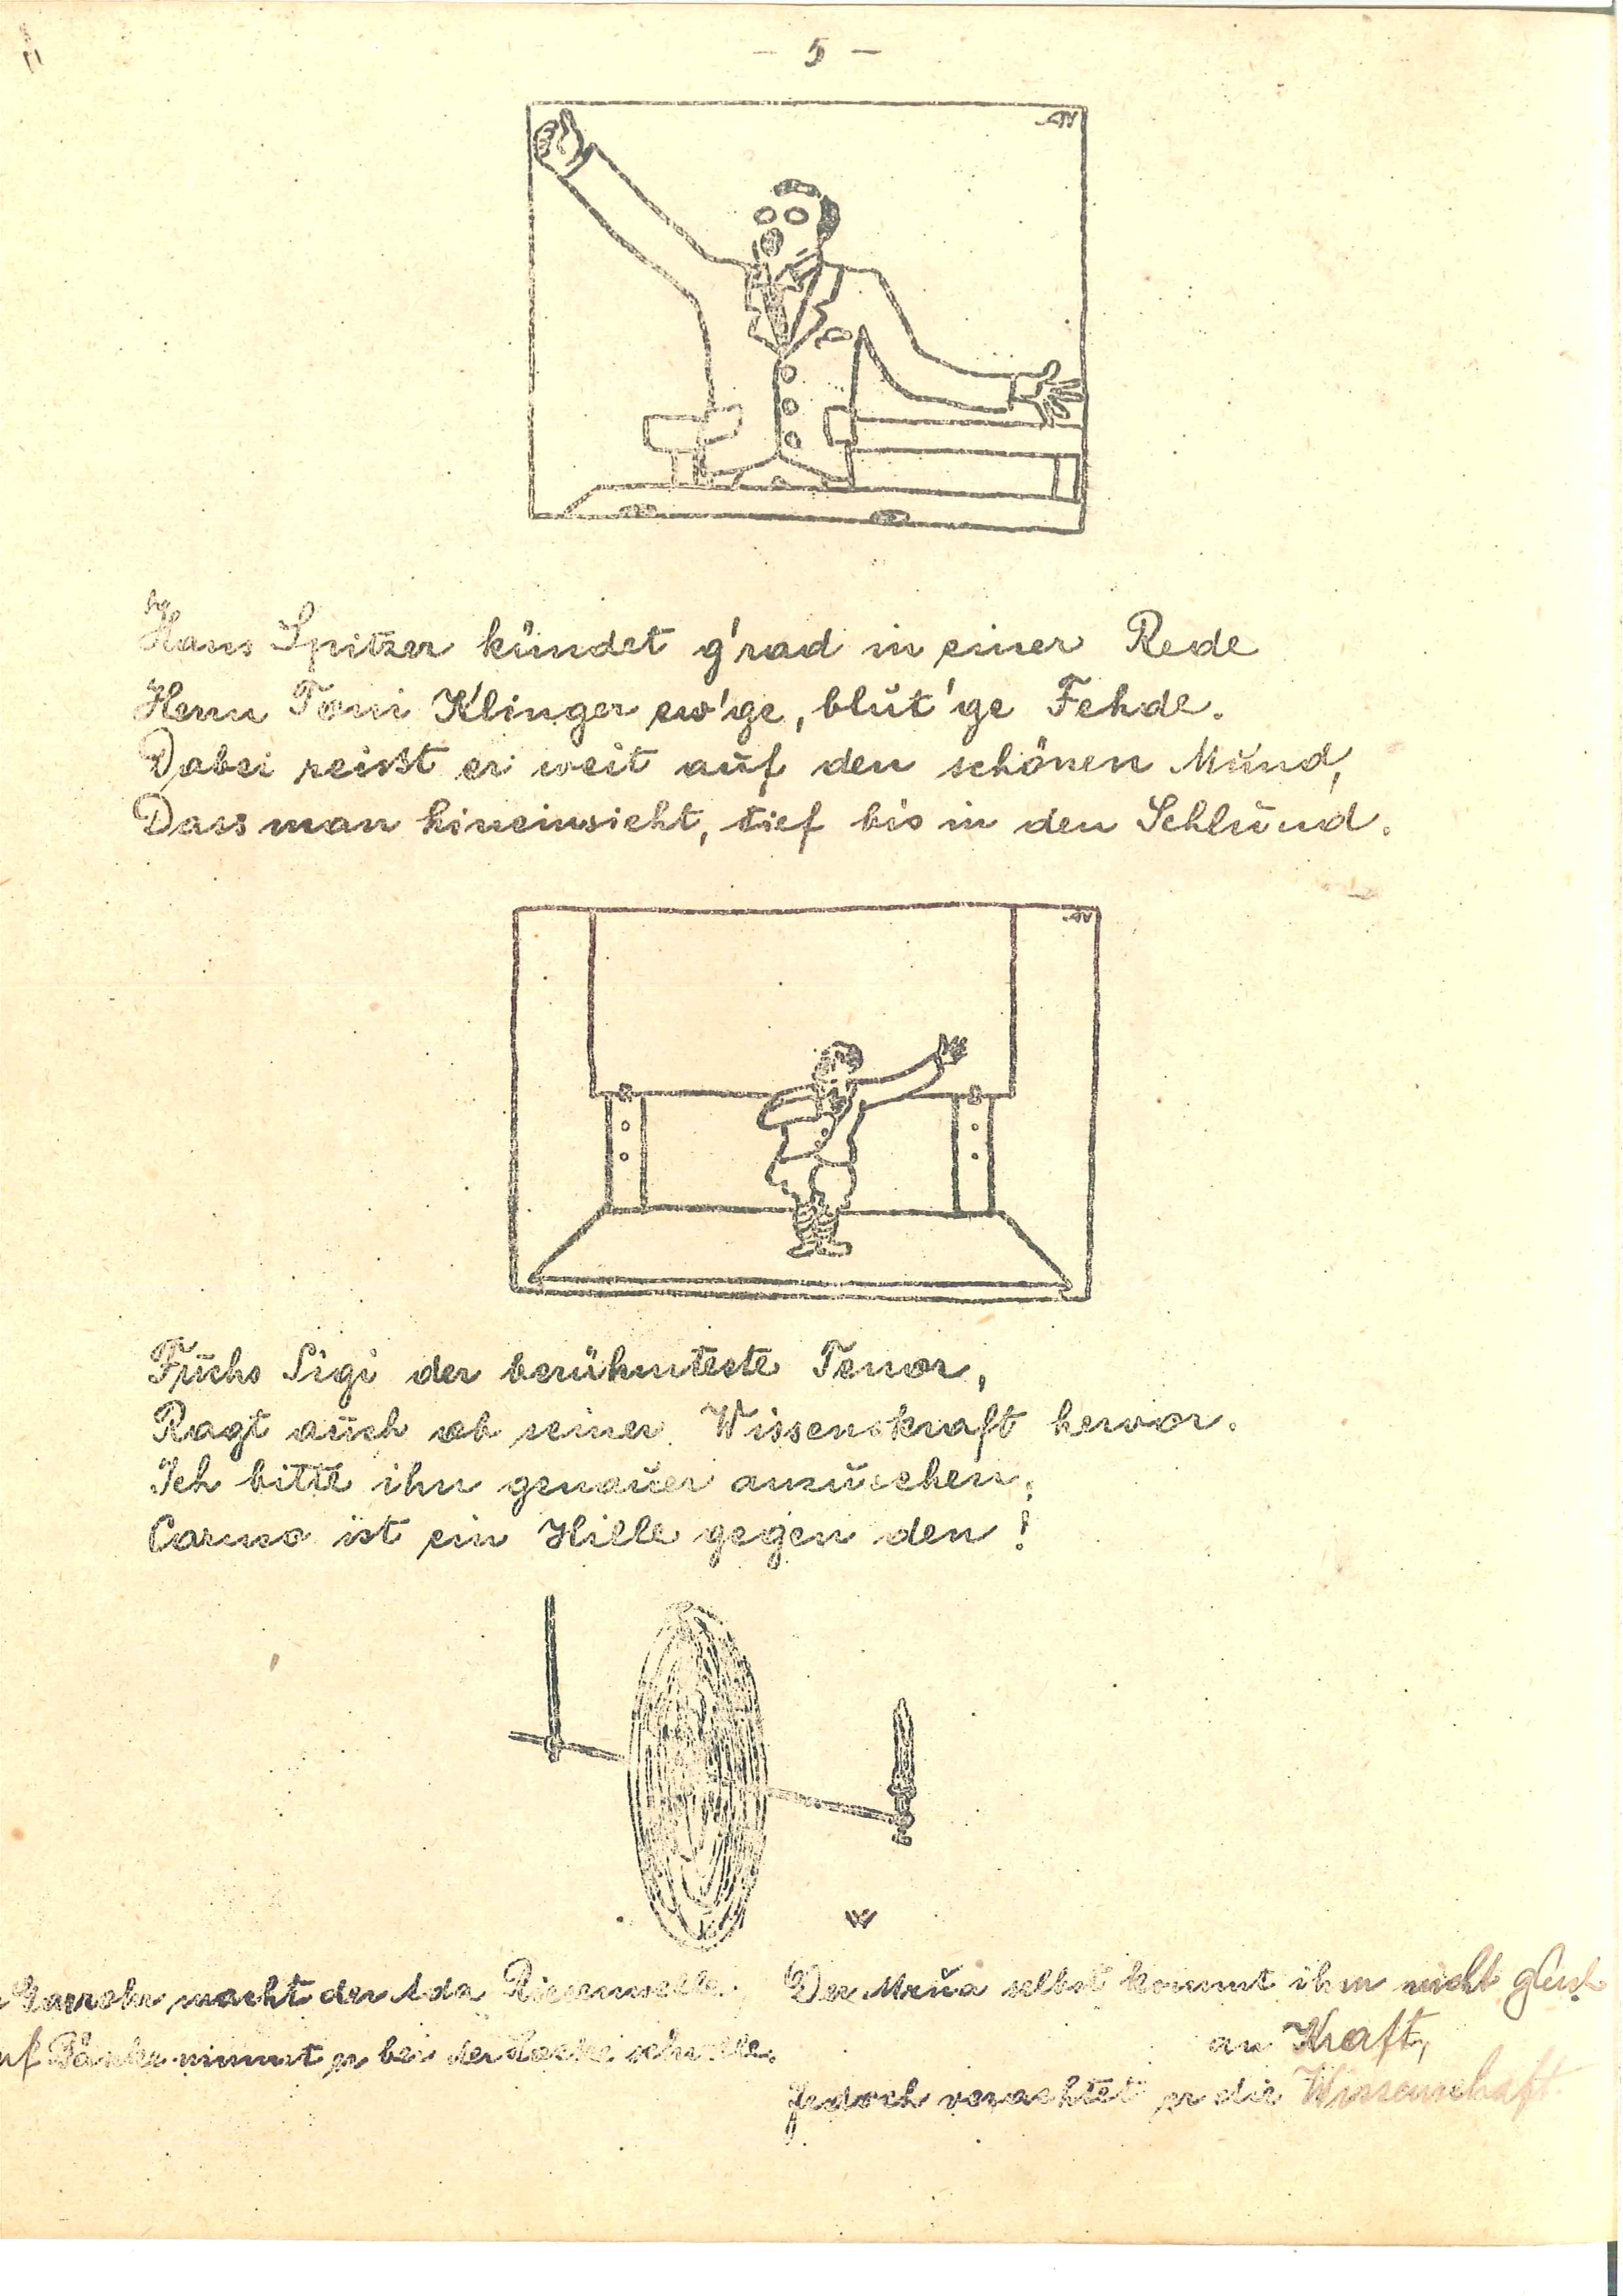 - 5 -
Hans Spitzer kündet g'rad in einer Rede
Herrn Toni Klinger ew'ge, blut'ge Fehde.
Dabei reisst er weit auf den schönen Mund,
Dass man hineinsieht, tief bis in den Schlund.
Fuchs Sigi der berühmteste Tenor,
Ragt auch ob seiner Wissenskraft hervor.
Ich bitte ihn genauer anzusehen,
Caruso ist ein Hille gegen den!
macht der Ada Riesenwelle.
nimmt er bei der schnelle.
Der Mrŭa selbst kommt ihm nicht gleich
an Kraft,
Jedoch verachtet er die Wissenschaft